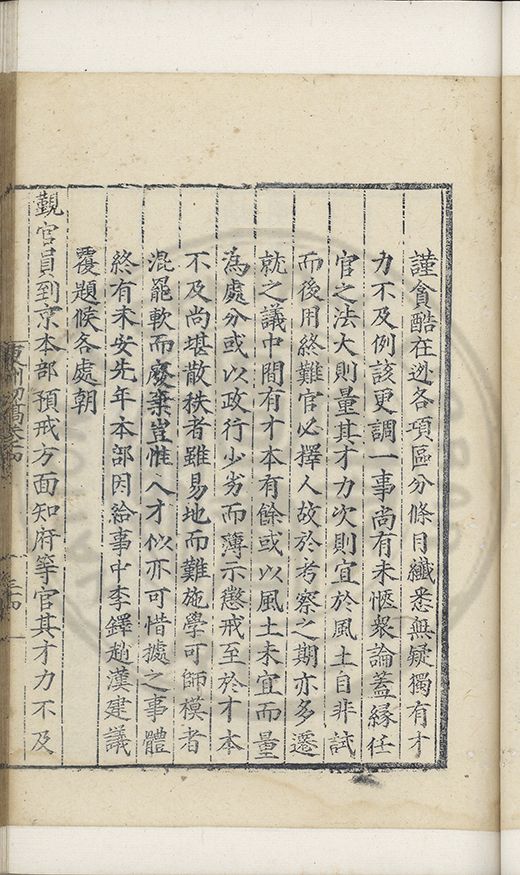 謹貪酷在逃各項區分條目纖悉無疑獨有才
力不及例該更調一事尚有未愜衆論蓋縁任
官之法大則量其才力次則宜於風土自非試
而後用終難官必擇人故於考察之期亦多遷
就之議中間有才本有餘或以風土未宜而量
為處分或以政行少劣而薄示懲戒至於才本
不及尚堪散秩者雖易地而難施學可師模者
混罷軟而廢棄豈惟人才似亦可惜據之事體
終有未安先年本部因給事中李鐸趙漢建議
覆題候各處朝
覲官員到京本部預戒方面知府等官其才力不及
東洲初稿卷